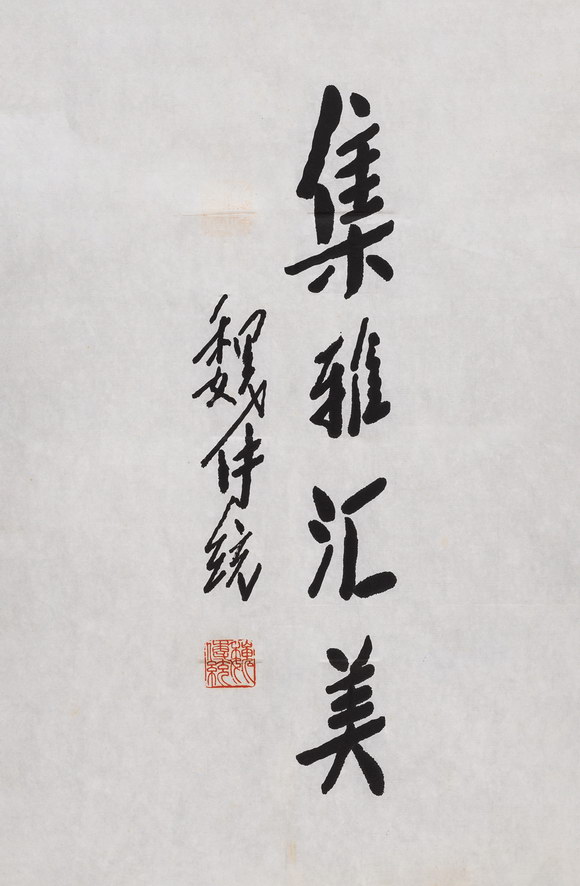 集雅汇美
魏传统